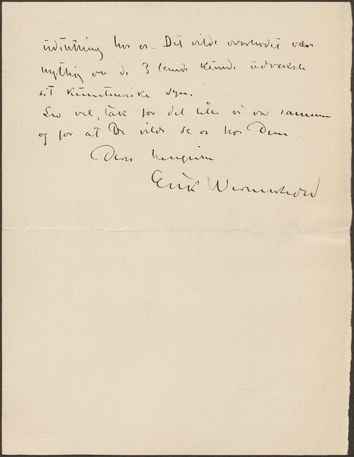 udstilling hos os. Det vilde overhodet være
nyttig om de 3 lande kunde udveksle
sit kunstneriske syn.
Lev vel, tak for det lille vi var sammen
og for at De vilde se os hos Dem
Deres hengivne
Erik Werenskiold